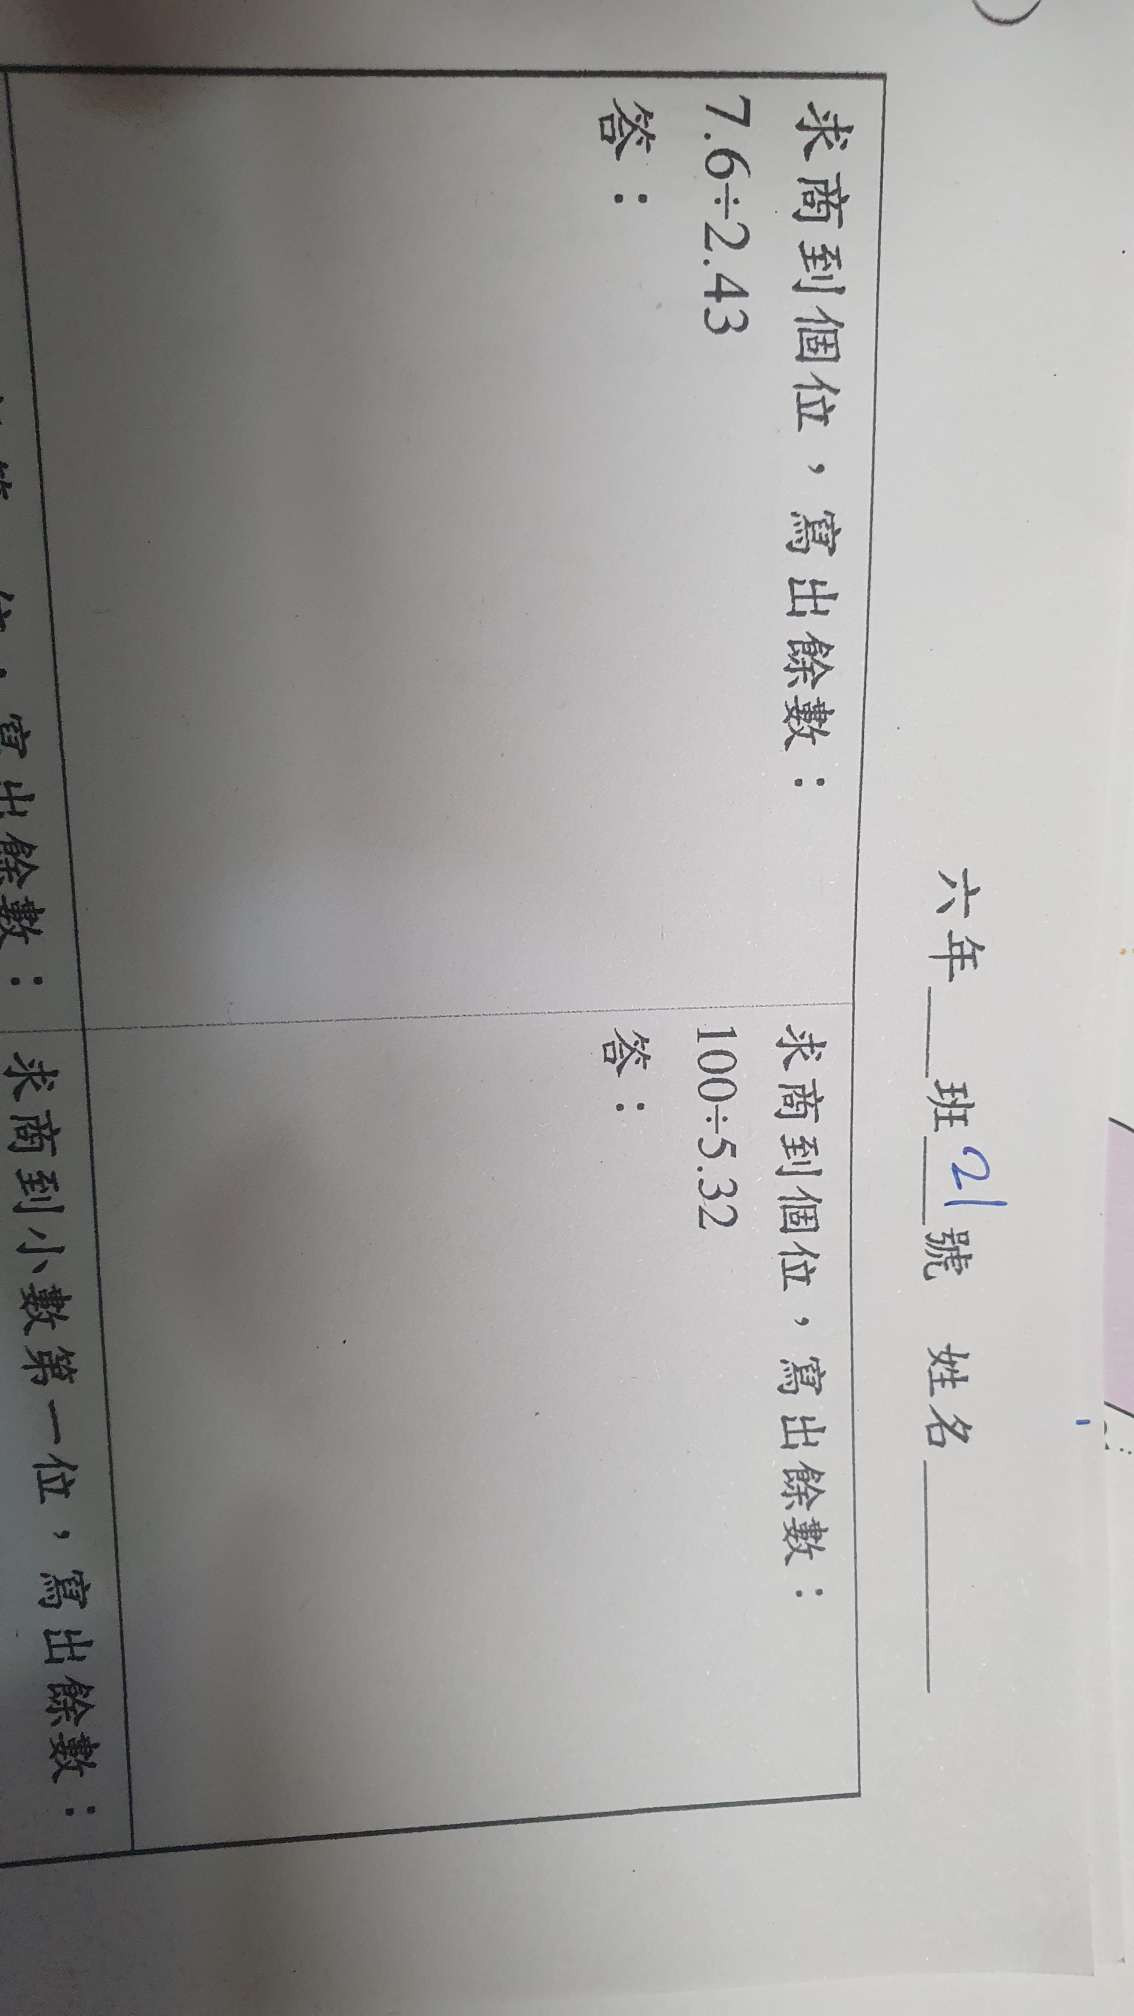 六年___班 21 號 姓名________
求商到個位，寫出餘數：
7.6÷2.43
答：
求商到個位，寫出餘數：
100÷5.32
答：
位，寫出餘數：
求商到小數第一位，寫出餘數：